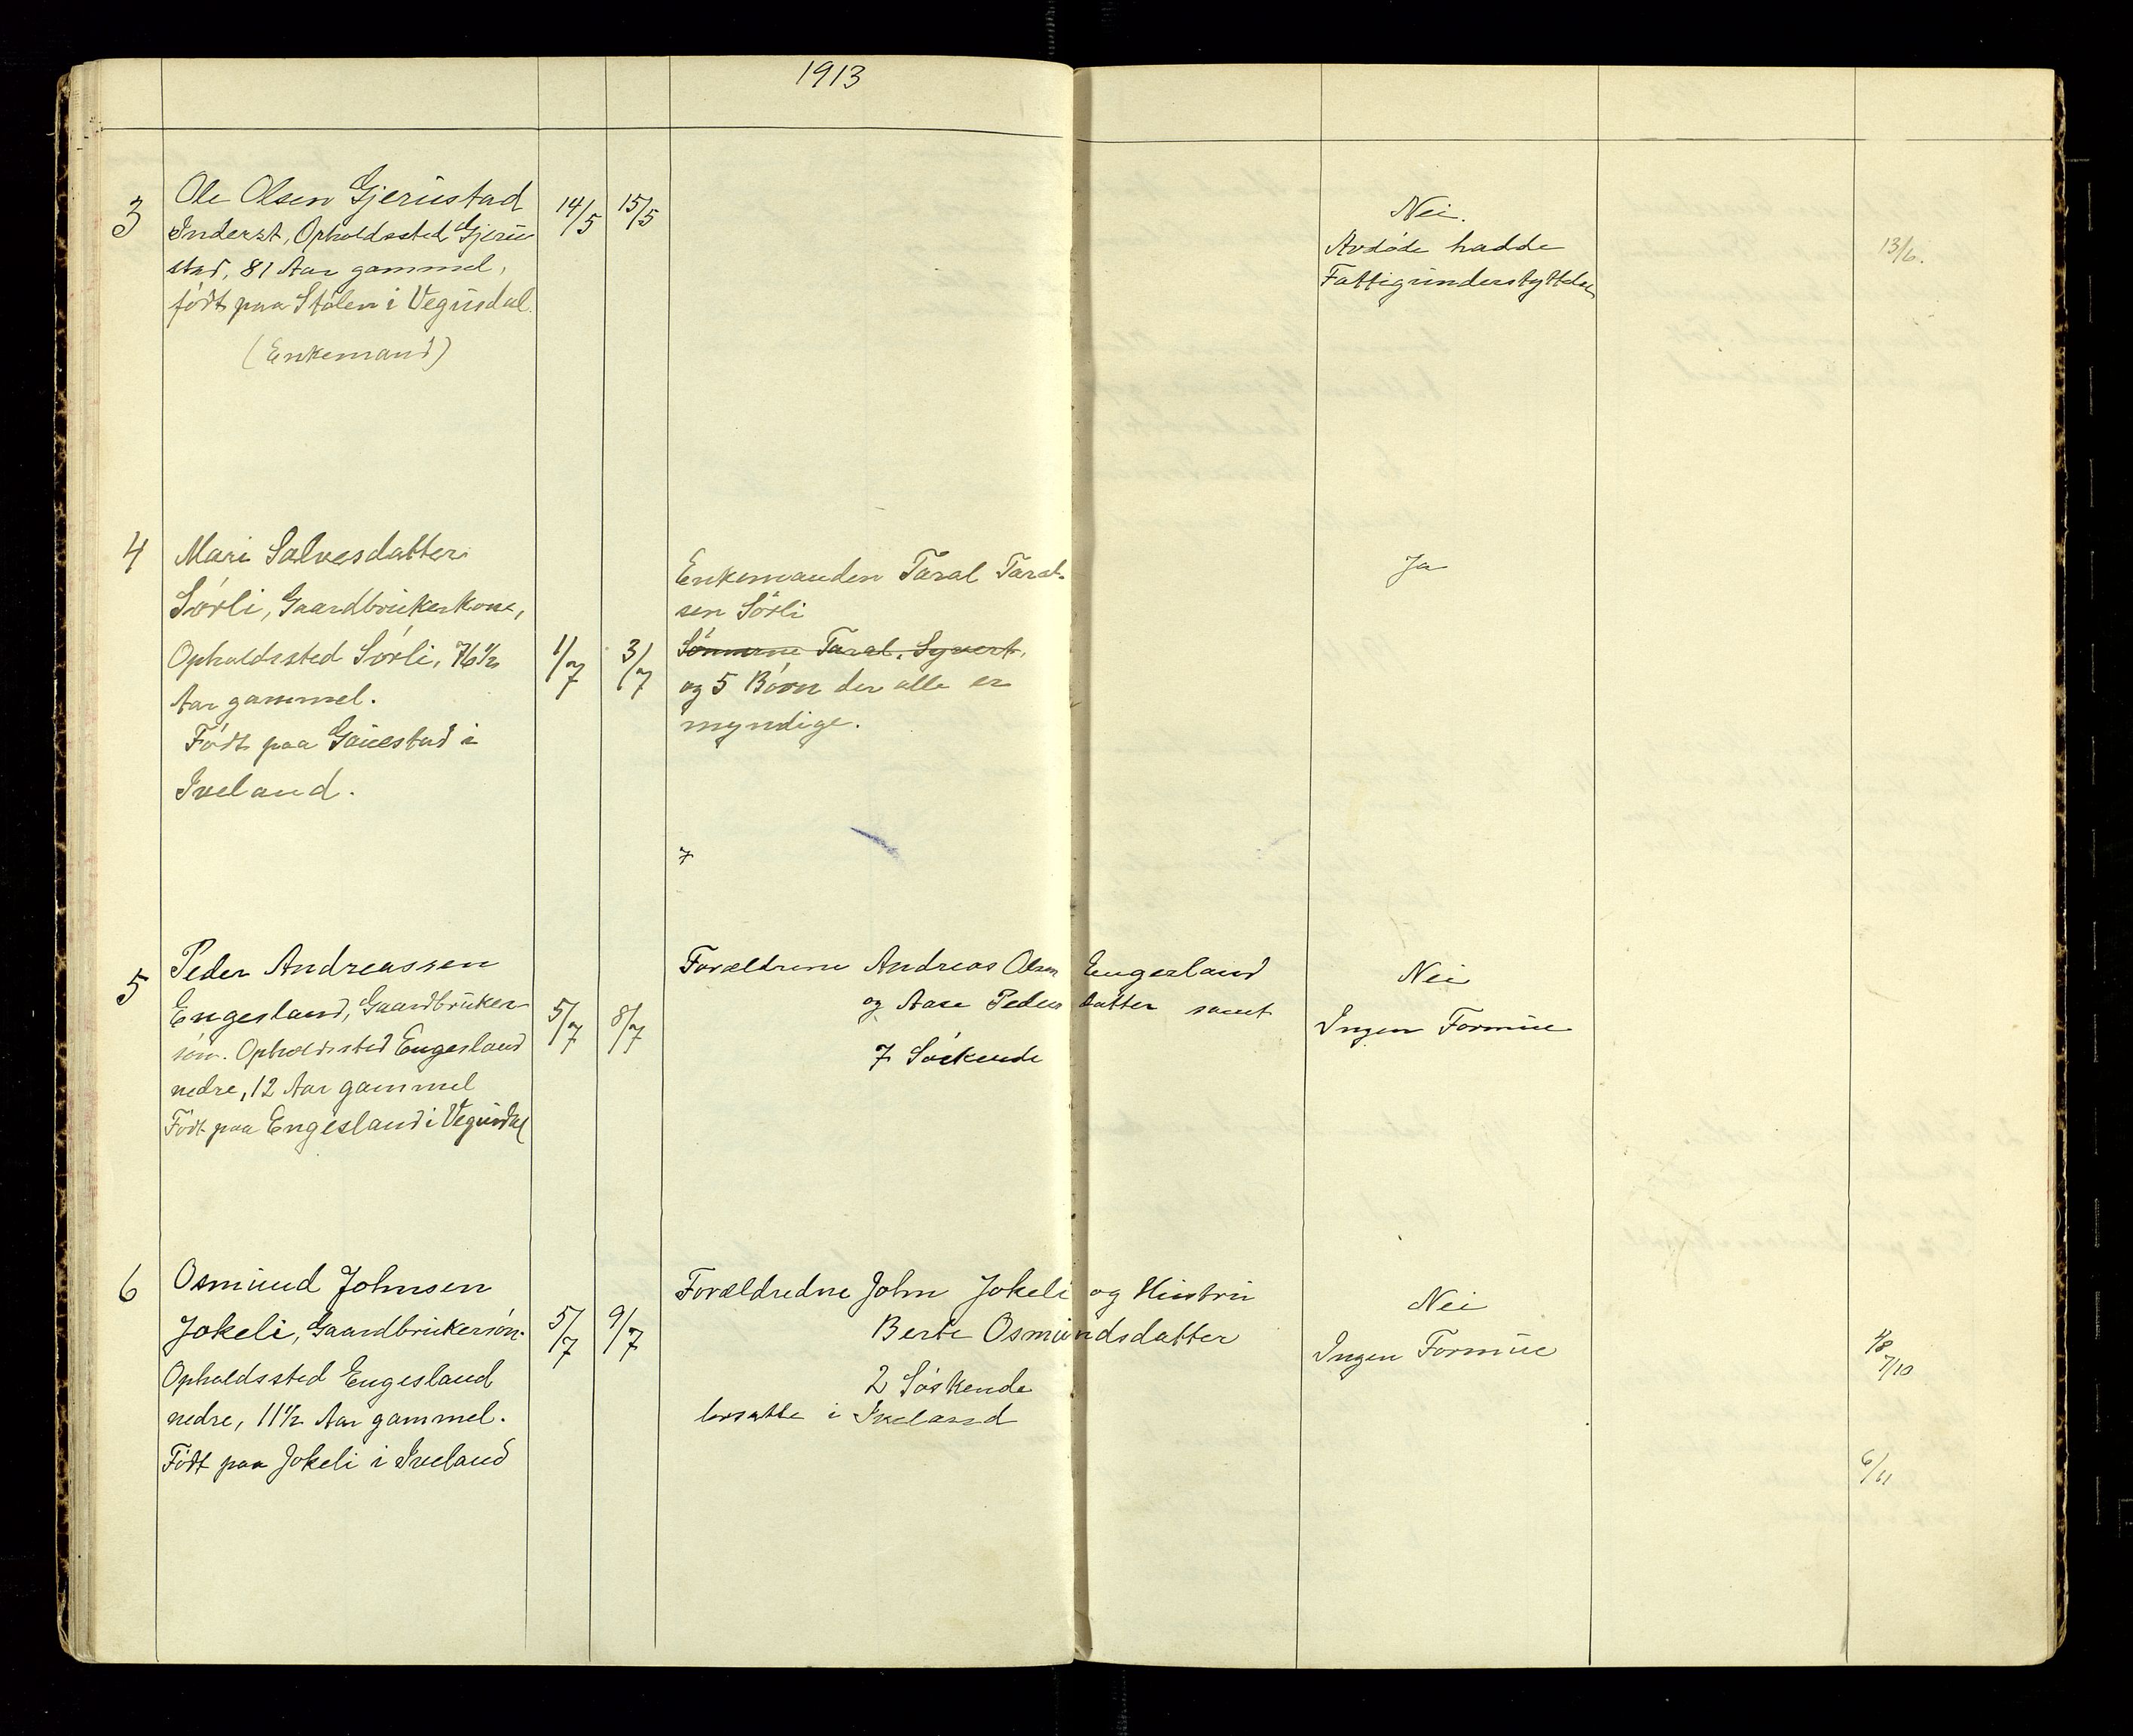 1913
3
Ole Olsen Gjerustad
Inderst, Opholdssted Gjeru
stad, 81 Aar gammel,
født paa Stålen i Vegusdal.
(Enkemand)
14/5
15/5
Nei.
Avdøde hadde
Fattigunderstyttelse
13/6.
4
Mari Salvesdatter
Sørli, Gaardbrukerkone,
Opholdssted Sørli, 76 1/2
Aar gammel.
Født paa Gauestad i
Iveland.
1/7
3/7
Enkemanden Taral Taral-
sen Sørli
Sønnerne Taral, Syvert,
og 5 Børn der alle er
myndige.
7
Ja
5
Peder Andreassen
Engesland, Gaardbruker
søn. Opholdssted Engesland
nedre, 12 Aar gammel
Født paa Engesland i Vegusdal
5/7
8/7
Forældrene Andreas Olsen Engesland
og Aase Pedersdatter samt
7 Søskende
Nei
Ingen Formue
6
Osmund Johnsen
Jokeli, Gaardbrukersøn.
Opholdssted Engesland
nedre, 11 1/2 Aar gammel.
Født paa Jokeli i Iveland
5/7
9/7
Forældredne John Jokeli og Hustru
Berte Osmundsdatter
2 Søskende
bosatte i Iveland
Nei
Ingen Formue
7/10
6/11